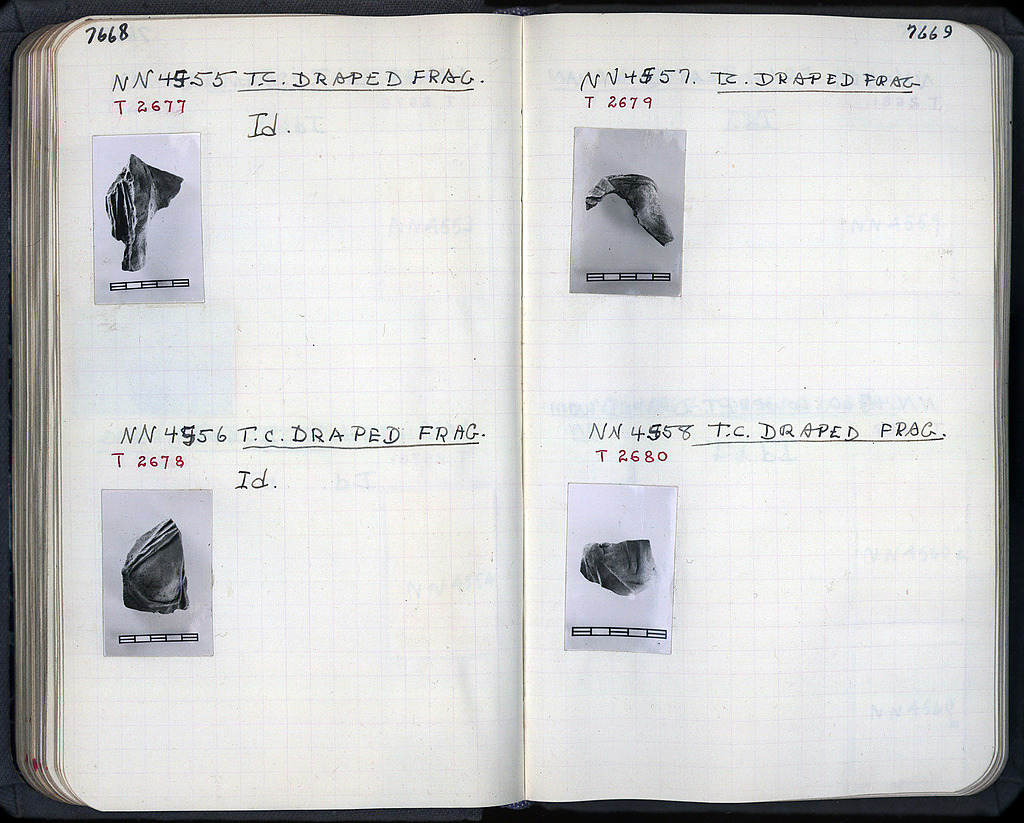 7668
NN 4555 T.C. DRAPED FRAG.
T 2677
Id.
NN 4556 T.C. DRAPED FRAG.
T 2678
Id.
7669
NN 4557. T.C. DRAPED FRAG
T 2679
NN 4558 T.C. DRAPED FRAG.
T 2680